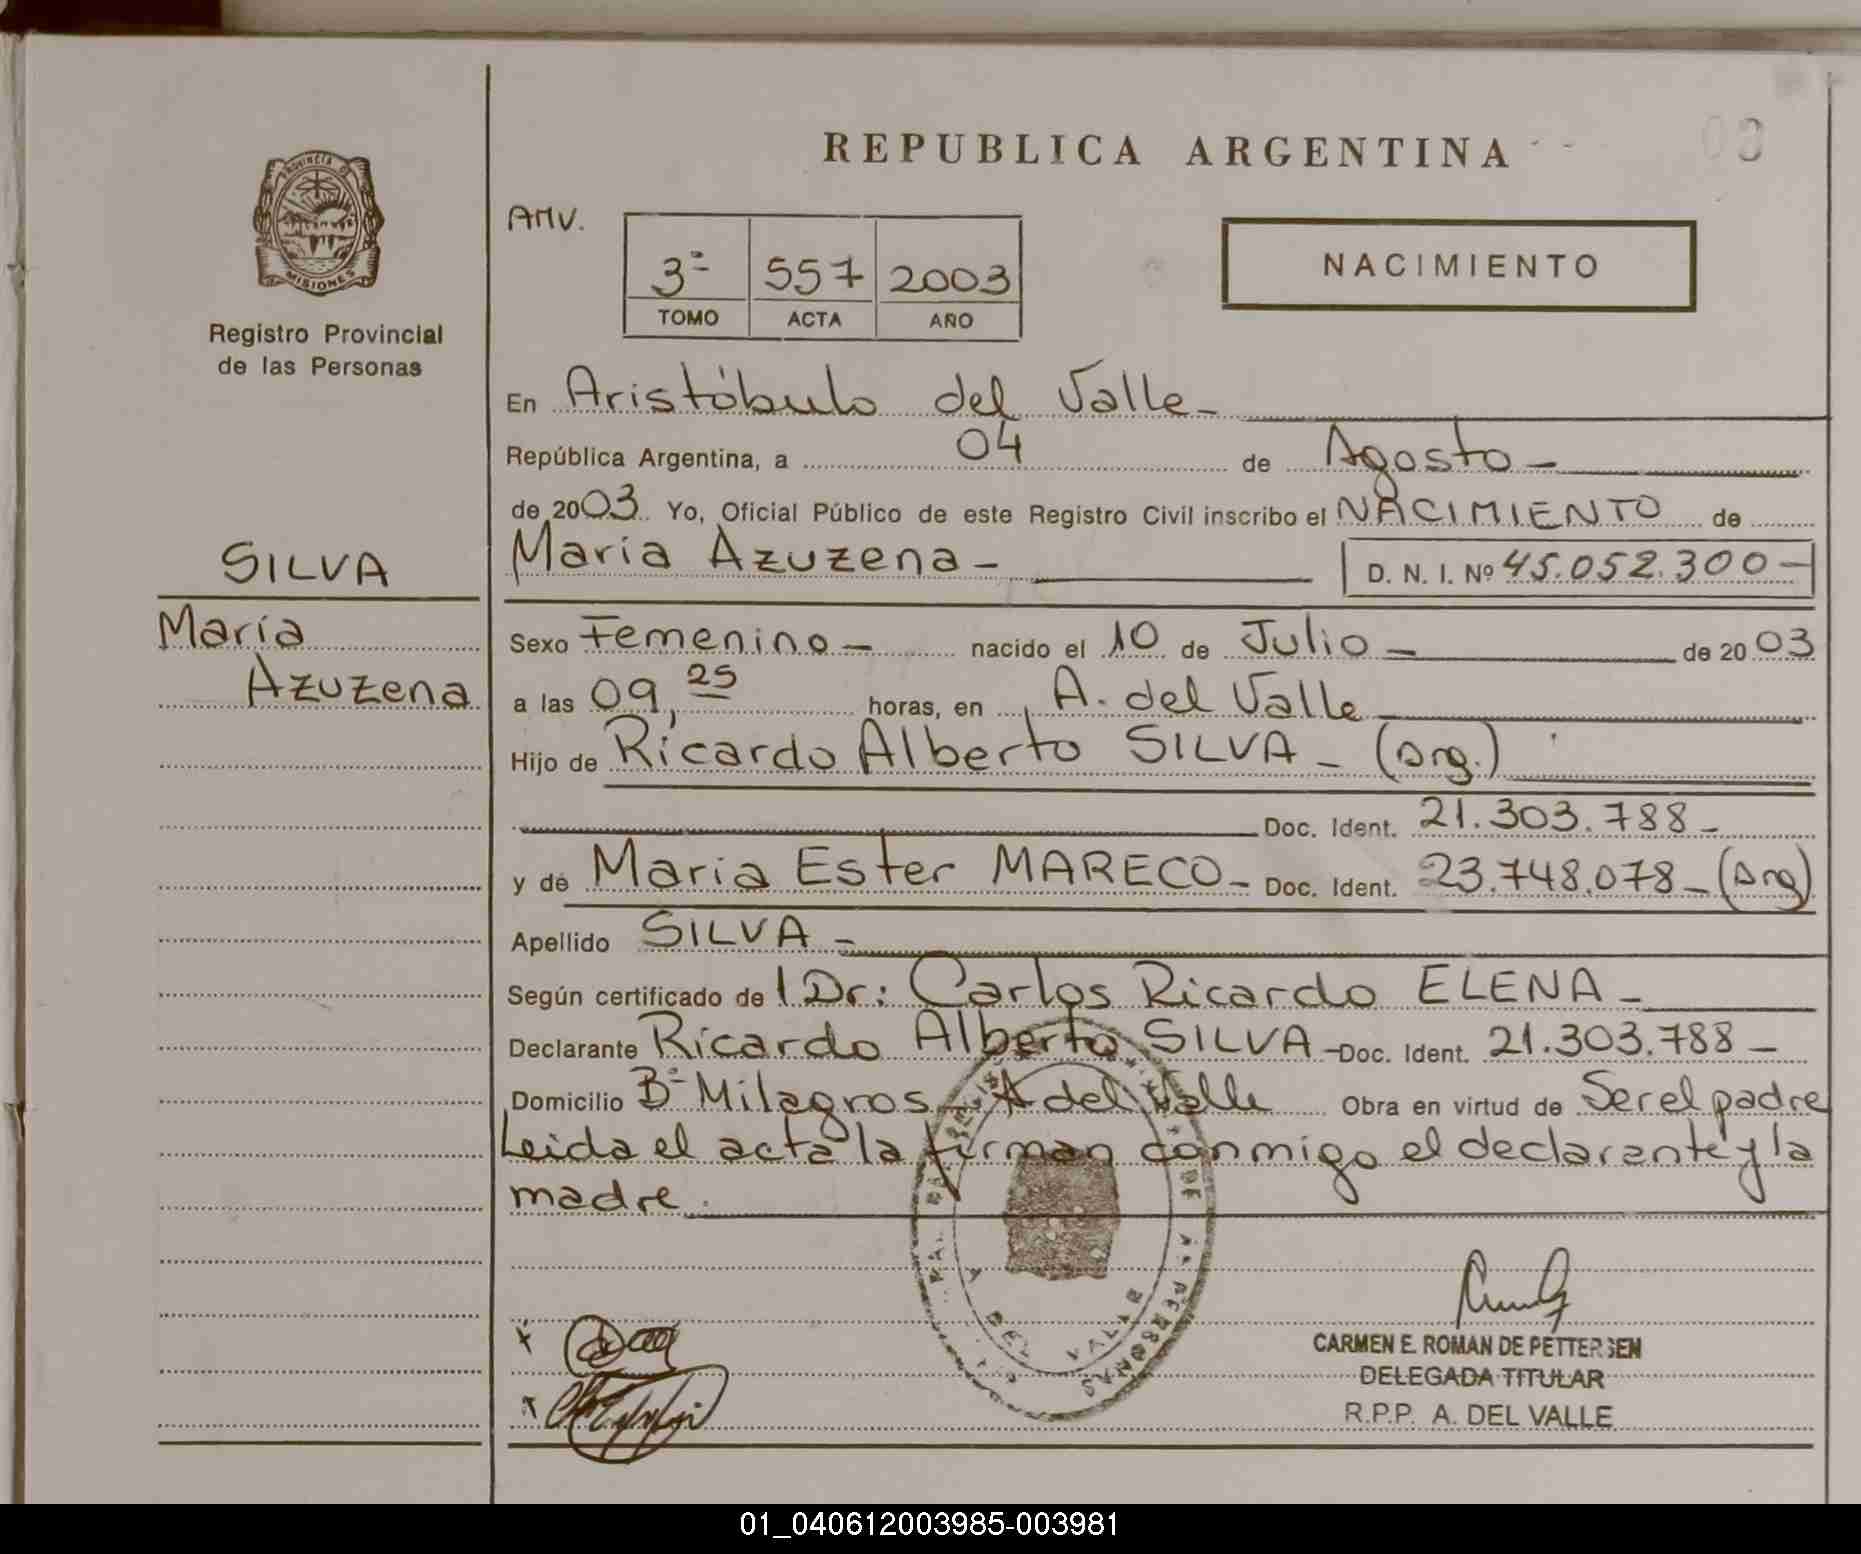 REPUBLICA ARGENTINA
PROVINCIA DE
MISIONES
Registro Provincial
de las Personas
AMV.
3ª 557 2003
TOMO ACTA AÑO
NACIMIENTO
En Aristóbulo del Valle-
República Argentina, a 04 de Agosto-
de 2003 Yo, Oficial Público de este Registro Civil inscribo el NACIMIENTO de
María Azuzena- D. N. I. Nº 45.052.300-
SILVA
María
Azuzena
Sexo Femenino- nacido el 10 de Julio- de 2003
a las 09,25 horas, en A. del Valle
Hijo de Ricardo Alberto SILVA- (Arg.)
Doc. Ident. 21.303.788-
y de Maria Ester MARECO- Doc. Ident. 23.748.078-(Arg)
Apellido SILVA-
Según certificado de Dr: Carlos Ricardo ELENA-
Declarante Ricardo Alberto SILVA- Doc. Ident. 21.303.788-
Domicilio Bº Milagros A del Valle Obra en virtud de Ser el padre
Leida el acta la firman conmigo el declarante y la
madre.
DE PERSONAS
A DEL VALLE
CARMEN E. ROMAN DE PETTERSEN
DELEGADA TITULAR
R.P.P. A. DEL VALLE
01_040612003985-003981